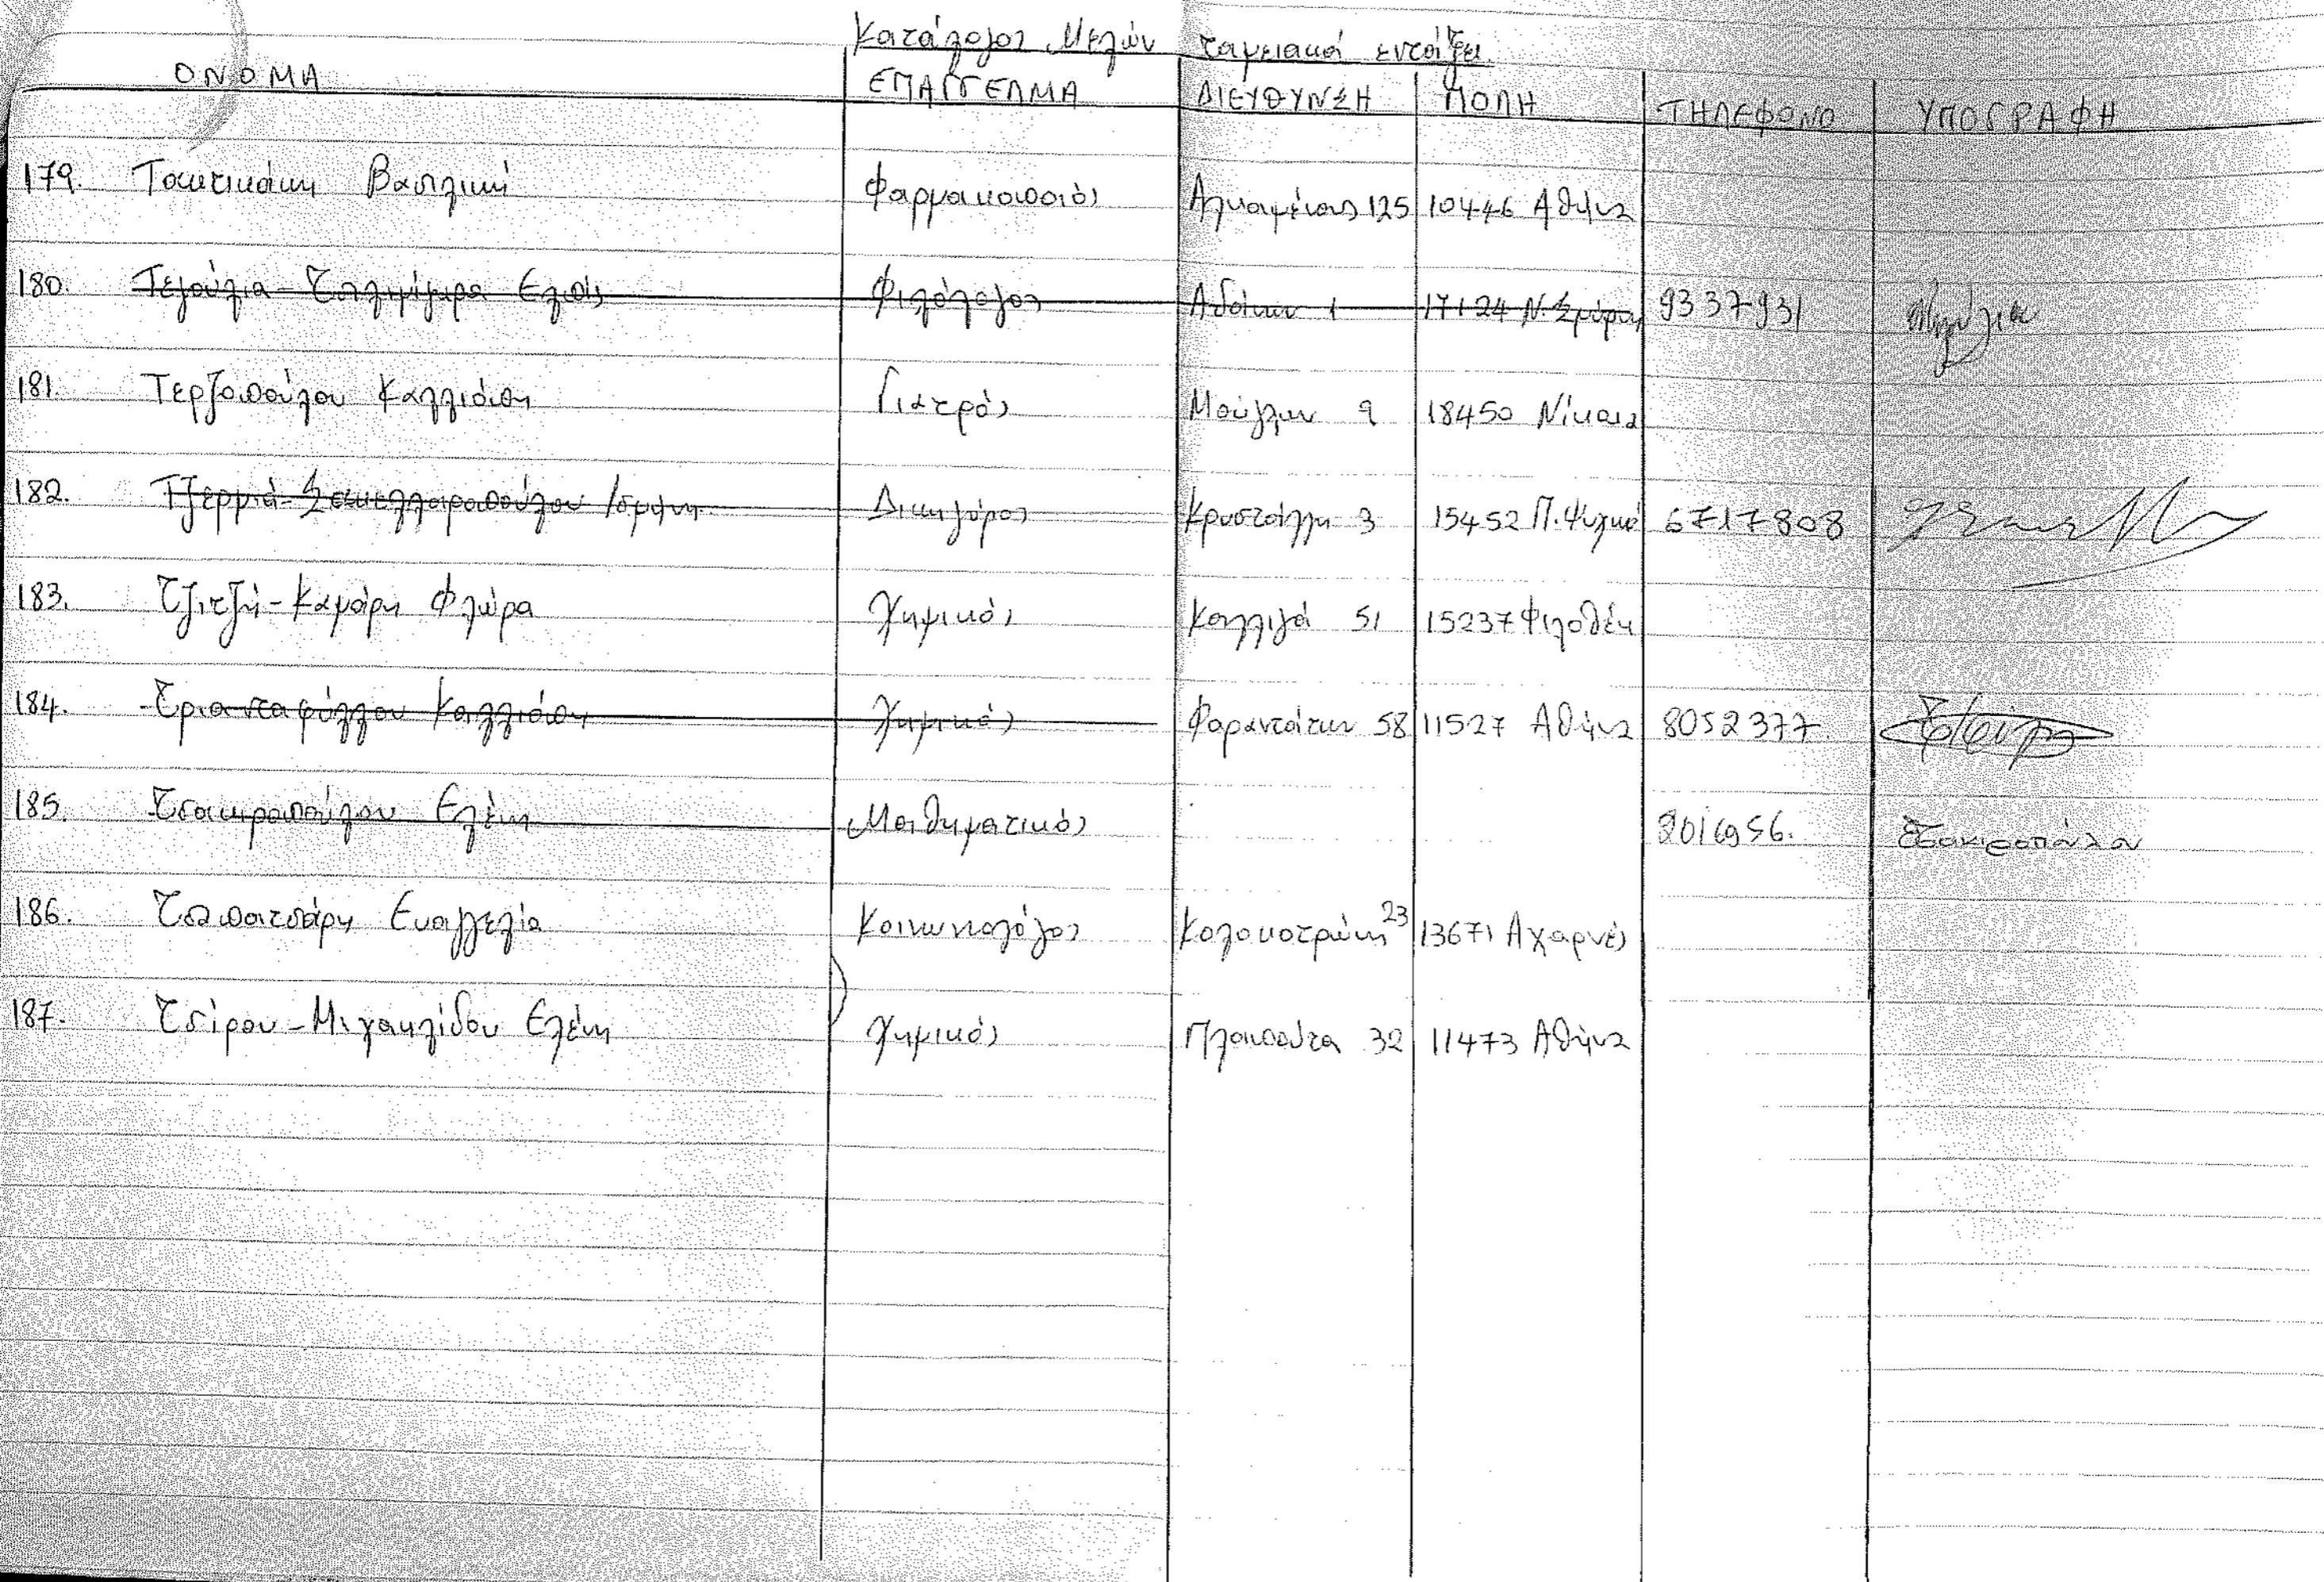 Κατάλογος Μελών ταμειακά εντάξει
ΟΝΟΜΑ ΕΠΑΓΓΕΛΜΑ ΔΙΕΥΘΥΝΣΗ ΠΟΛΗ ΤΗΛΕΦΩΝΟ ΥΠΟΓΡΑΦΗ
179. Τακτικάκη Βασιλική Φαρμακοποιός Αλκαμένους 125 10446 Αθήνα
180. Τεγούλια Ελπίς Φιλόλογος 1 17124 Ν. Σμύρνη 9337931
181. Τερζοπούλου Καλλιόπη Γιατρός Μούγλων 9 18450 Νίκαια
182. Τζερμιά-Σακελλαροπούλου Ισμήνη Δικηγόρος Κρυστάλλη 3 15452 Π. Ψυχικό 6717808
183. Τζιτζή-Καμάρη Φλώρα Χημικός Καλλιγά 51 15237 Φιλοθέη
184. Τριανταφύλλου Καλλιόπη Χημικός Φαραντάτων 58 11527 Αθήνα 8052377
185. Τσακιροπούλου Ελένη Μαθηματικός 8016956. Τσακιροπούλου
186. Τσαπατσάρη Ευαγγελία Κοινωνιολόγος Κολοκοτρώνη 23 13671 Αχαρνές
187. Τσίρου-Μιχαηλίδου Ελένη Χημικός Πλαπούτα 32 11473 Αθήνα